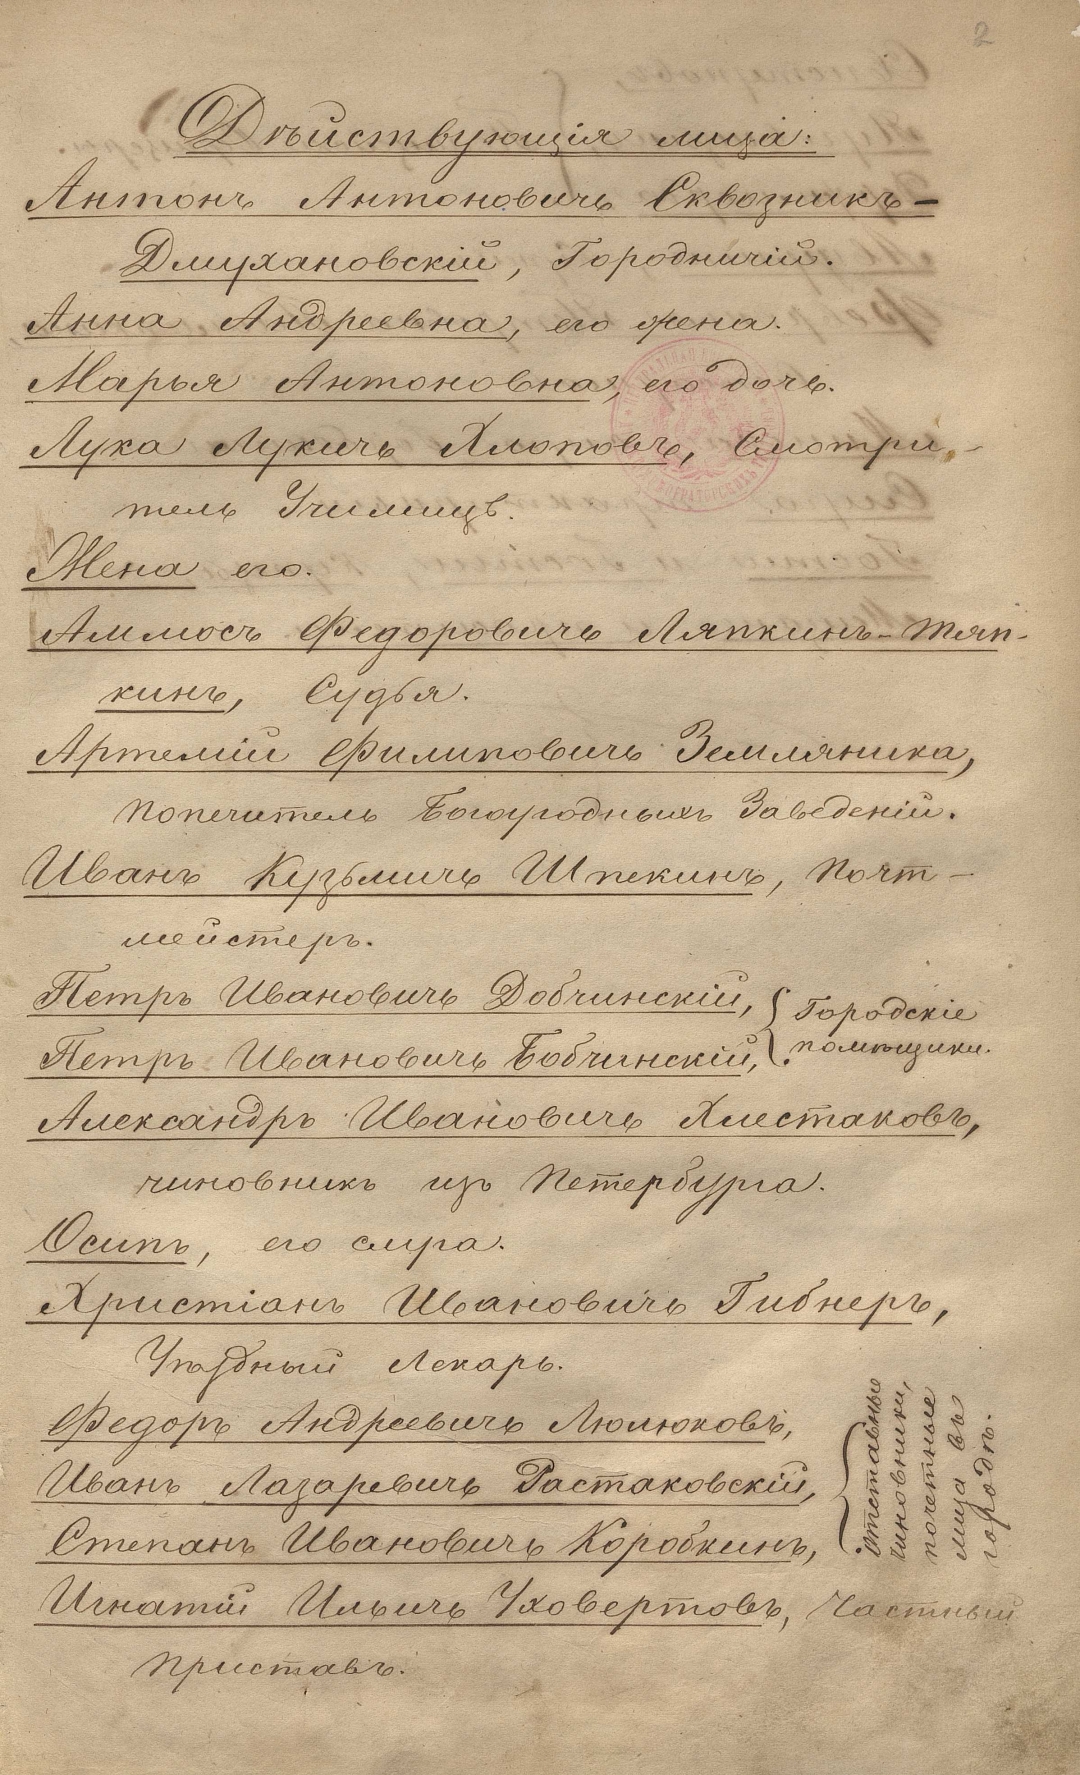 2
Дѣйствующія лица:
Антонъ Антоновичъ Сквозникъ-
Дмухановскій, Городничій.
Анна Андреевна, его жена.
Марья Антоновна, его дочь.
Лука Лукичъ Хлоповъ, Смотри-
тель Училищъ.
Жена его.
Аммосъ Федоровичъ Ляпкинъ-Тяп-
кинъ, Судья.
Артемій Филиповичъ Земляника,
попечитель Богоугодныхъ Заведеній.
Иванъ Кузьмичъ Шпекинъ, Почт-
мейстеръ.
Петръ Ивановичъ Добчинскій, Городскіе
Петръ Ивановичъ Бобчинскій, помѣщики.
Александръ Ивановичъ Хлестаковъ,
чиновникъ изъ Петербурга.
Осипъ, его слуга.
Христіанъ Ивановичъ Гибнеръ,
Уѣздный Лекарь.
Федоръ Андреевичъ Люлюковъ,
Иванъ Лазаревичъ Растаковскій,
Степанъ Ивановичъ Коробкинъ,
Отставные
чиновники,
почетные
лица въ
городѣ.
Игнатій Ильичъ Уховертовъ, Частный
приставъ.